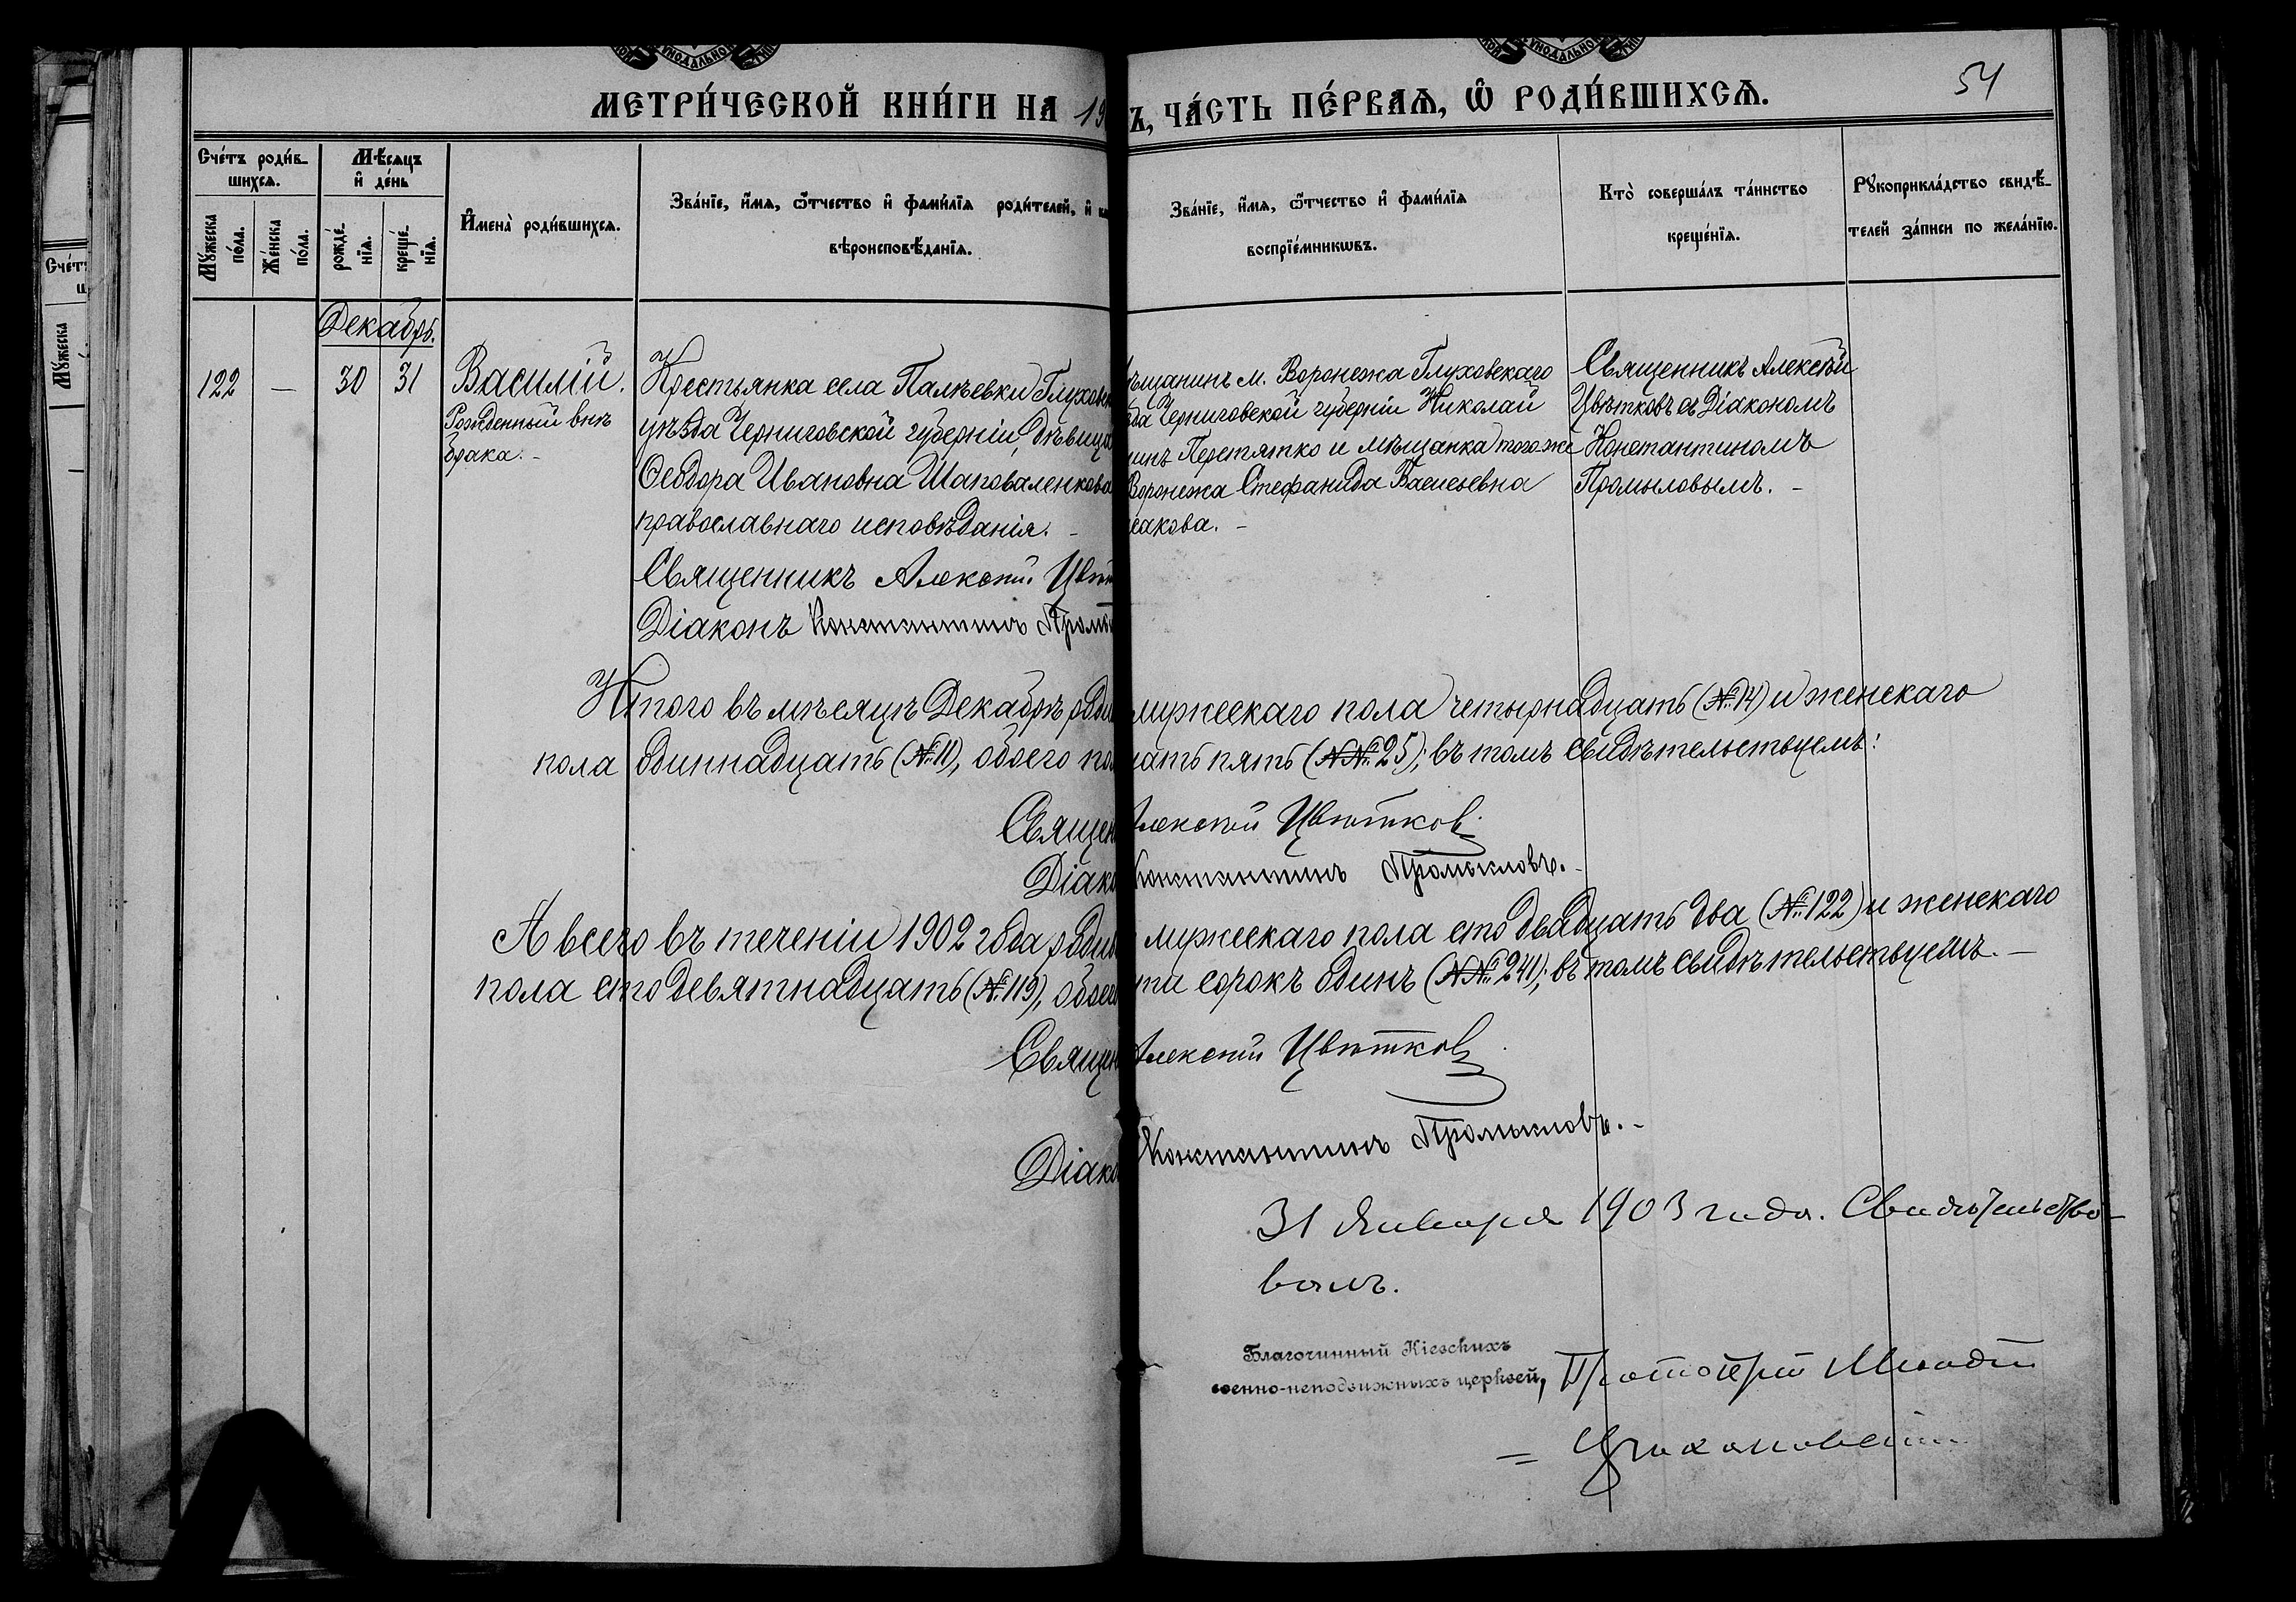 МЕТРИ́ЧЕСКОЙ КНИ́ГИ НА 19 Ъ, ЧА́СТЬ ПЕ́РВАЯ, Ѿ РОДИ́ВШИХСЯ.
54
Сче́тъ роди́в-
шихся.
Мѣ́сяцъ
и҆ де́нь
Му́жеска
по́ла.
Же́нска
по́ла.
рожде́-
нїя.
креще́-
нїя.
И҆мена̀ роди́вшихся.
Зва́нїе, и҆́мя, ѿ́тчество и҆ фами́лїя роди́телей, и҆
вѣроисповѣ́данїя.
Зва́нїе, и҆́мя, ѿ́тчество и҆ фами́лїя
воспрїе́мникѡвъ.
Кто̀ соверша́лъ та́инство
креще́нїя.
Рꙋкоприкла́дство свидѣ́-
телей за́писи по жела́нїю.
Сче́тъ
Му́жеска
Декабрь.
122 — 30 31
Василій.
Рожденный внѣ
брака. -
Крестьянка села Палѣевки Глуховск
уѣзда Черниговской губерніи, дѣвица
Ѳеодора Ивановна Шаповаленкова
православнаго исповѣданія. -
Священникъ Алексѣй Цвѣт
Діаконъ Константинъ Промы
ѣщанинъ м. Воронежа Глуховскаго
да Черниговской губерніи Николай
инъ Перетятко и мѣщанка того-же
Воронежа Стефанида Васильевна
сакова. -
Священникъ Алексѣй
Цвѣтковъ съ Діакономъ
Константиномъ
Промысловымъ. -
Итого въ мѣсяцѣ Декабрѣ роди мужескаго пола четырнадцать (№ 14) и женскаго
пола одиннадцать (№ 11), обоего по цать пять (№№ 25); въ томъ свидѣтельствуемъ:
Священ Алексѣй Цвѣтков
Діако Константинъ Промысловъ. -
А всего въ теченіи 1902 года родил мужескаго пола сто двадцать два (№ 122) и женскаго
пола сто девятнадцать (№ 119), обоего ти сорокъ одинъ (№№ 241); въ томъ свидѣтельствуемъ. -
Священ Алексѣй Цвѣтков
Діако Константинъ Промысловъ. -
31 Января 1903 года. Свидѣтельство-
валъ.
Благочинный Кіевскихъ
военно-неподвижныхъ церквей, Протоіерей